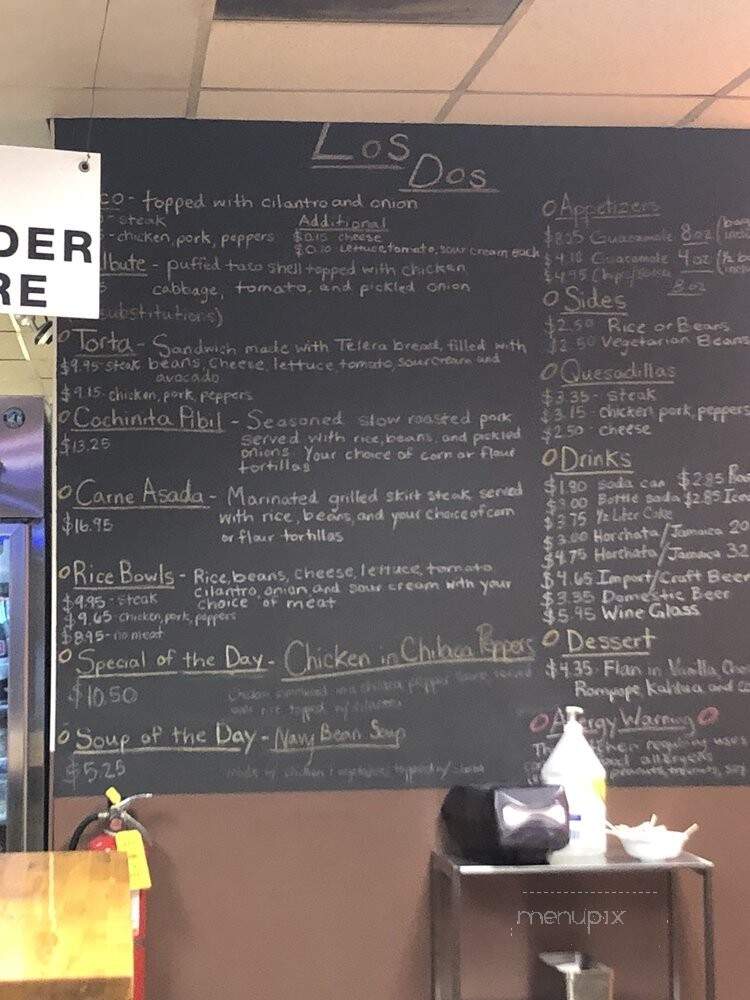 DER
RE
Los Dos
co - topped with cilantro and onion
- steak
- chicken, pork, peppers
Additional
$0.15 cheese
$0.20 lettuce, tomato, sour cream each
lbute - puffed taco shell topped with chicken
cabbage, tomato, and pickled onion
substitutions)
Torta - Sandwich made with Telera bread, filled with
$9.95 - steak beans, cheese, lettuce, tomato, sour cream and
avocado
$9.15 - chicken, pork, peppers
Cochinita Pibil - Seasoned slow roasted pork
$13.25 served with rice, beans, and pickled
onions. Your choice of corn or flour
tortillas
Carne Asada - Marinated grilled skirt steak served
$16.95 with rice, beans, and your choice of corn
or flour tortillas
Rice Bowls - Rice, beans, cheese, lettuce, tomato
cilantro, onion and sour cream with your
$9.95 - steak choice of meat
$9.65 - chicken, pork, peppers
$8.95 - no meat
Special of the Day - Chicken in Chilaca Peppers
$10.50
Soup of the Day - Navy Bean Soup
$5.25
Appetizers
$8.25 Guacamole 8oz
$4.18 Guacamole 4oz
$4.95 Chips/Salsa
8oz
Sides
$2.50 Rice or Beans
$2.50 Vegetarian Beans
Quesadillas
$3.35 - steak
$3.15 - chicken, pork, peppers
$2.50 - cheese
Drinks
$1.80 soda can $2.85
$3.00 Bottle soda $2.85
$3.75 1/2 Liter Coke
$3.00 Horchata/Jamaica 20
$4.75 Horchata/Jamaica 32
$4.65 Import/Craft Beer
$3.35 Domestic Beer
$5.95 Wine Glass
Dessert
$4.35 - Flan in Vanilla,
Rompope, Kahlua and
Allergy Warning
menupix